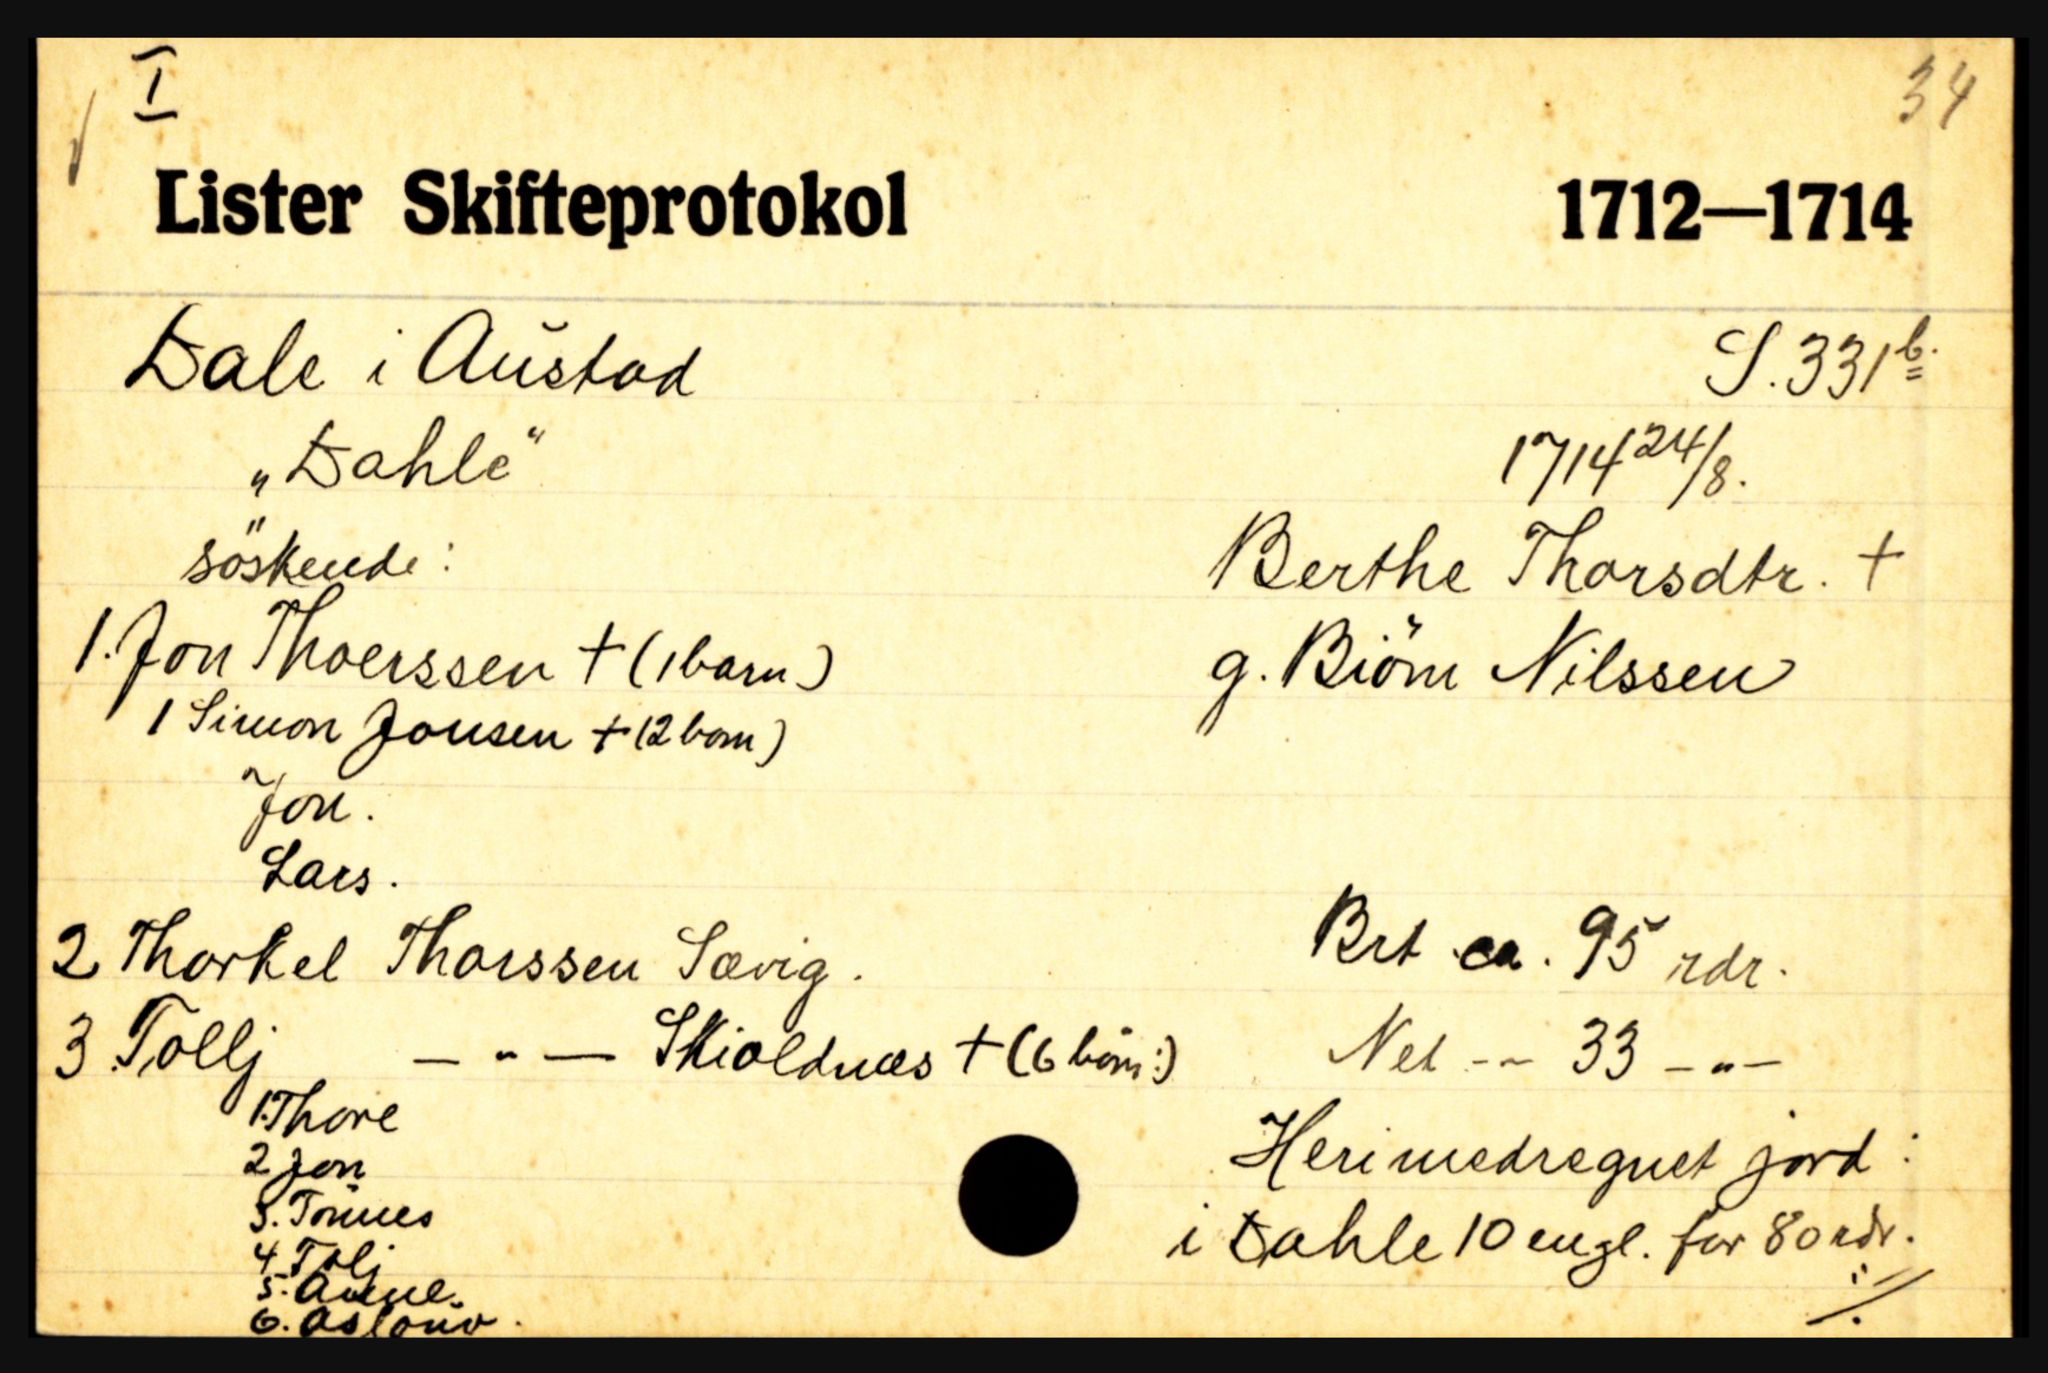 I
34
Lister Skifteprotokol 1712—1714
Dale i Austad S. 331 b.
„Dahle" 1714 24/8.
söskende: Berthe Thorsdtr. +
1. Jon Thoerssen + (1 barn) g. Biörn Nilssen
1 Simon Jonsen + (2 born)
Jon.
Lars.
2 Thorkel Thorssen Sævig. Brt. ca. 95 rdr.
3. Tollj — " — Skioldnæs + (6 börn:) Net -- 33 — " —
1. Thore
2 Jon Heri medregnet jord:
3. Tönnes i Dahle 10 engl. for 80 rdr.
4. Tolj
5. Anne.
6. Aslouv.